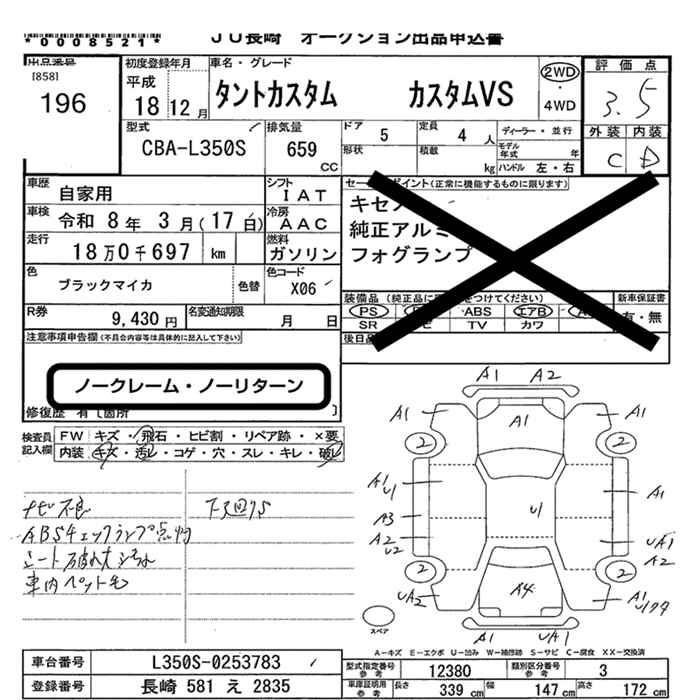 *0008521*
JU長崎 オークション出品申込書
出品番号
[858]
196
初度登録年月
平成
18 12 月
車名・グレード
タントカスタム カスタムVS
2WD
・
4WD
評価点
3.5
外装 内装
C D
型式
CBA-L350S
排気量
659
CC
ドア 5
定員 4 人
形状
積載 kg
ディーラー・並行
モデル年式 年
ハンドル 左・右
車歴 自家用
シフト IAT
車検 令和 8 年 3 月(17 日)
冷房 AAC
走行 18 万 0 千 697 km
燃料 ガソリン
色 ブラックマイカ 色替
色コード X06
R券 9,430 円
名変通知期限 月 日
セールスポイント(正常に機能するものに限ります)
純正アルミ
フォグランプ
装備品(純正品に をつけてください)
新車保証書
PS ABS エアB
SR TV カワ
有・無
後日品
注意事項申告欄(不具合内容等は具体的に記入して下さい)
ノークレーム・ノーリターン
修復歴 有[箇所 ]
検査員記入欄
FW キズ・飛石・ヒビ割・リペア跡・×要
内装 キズ・汚レ・コゲ・穴・スレ・キレ・破レ
ナビ不良 下廻りS
ABSチェックランプ点灯
車内ペット毛
A1 A2
A1 A1 A1
2 2
A1 U1 A1
A3 U1
A2 U2 UA1 A2
2 2
UA2 A4 A1
スペア
U1 UA1
A－キズ E－エクボ U－凹み W－補修跡 S－サビ C－腐食 XX－交換済
車台番号 L350S-0253783
登録番号 長崎 581 え 2835
型式指定番号 参考 12380
類別区分番号 参考 3
車庫証明用 参考 長さ 339 cm 幅 147 cm 高さ 172 cm